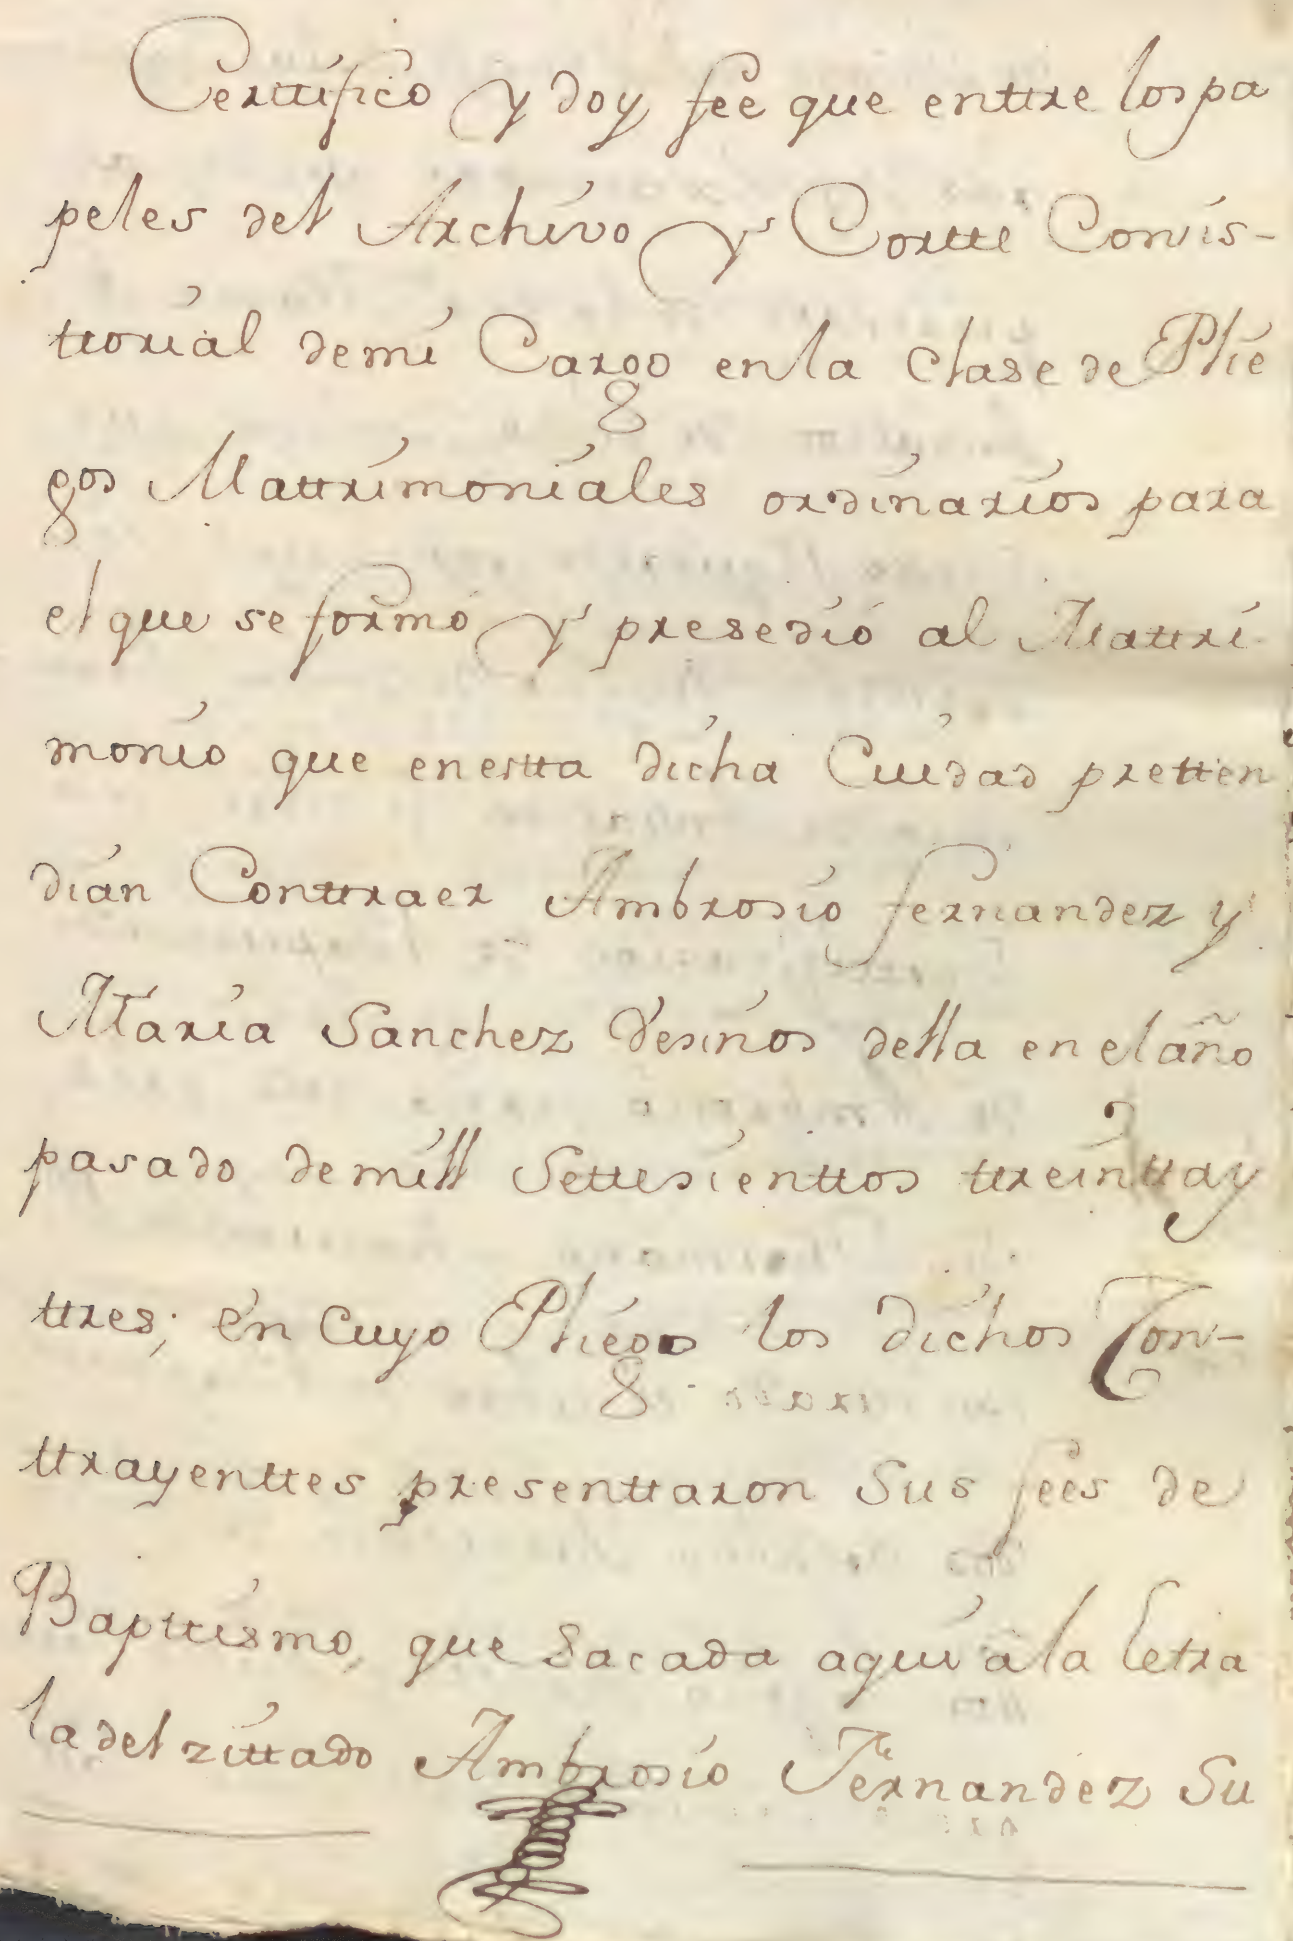 Certtífico y doy fee que enttre los pa
peles del Archivo y Cortte Convis-
ttorial de mi Cargo en la clase de Plie
gos Mattrimoniales ordinarios para
el que se formó y presedió al Mattri
monio que en estta dicha Ciudad pretten
dian Conttraer Ambrosio fernandez y
Maria Sanchez Vesinos della en el año
pasado de mill Settesienttos ttreintta y
ttres; en Cuyo Pliego los dichos Con-
ttrayenttes presenttaron Sus fees de
Bapttismo, que Sacada aqui à la Letra
la del zittado Ambrosio Fernandez Su